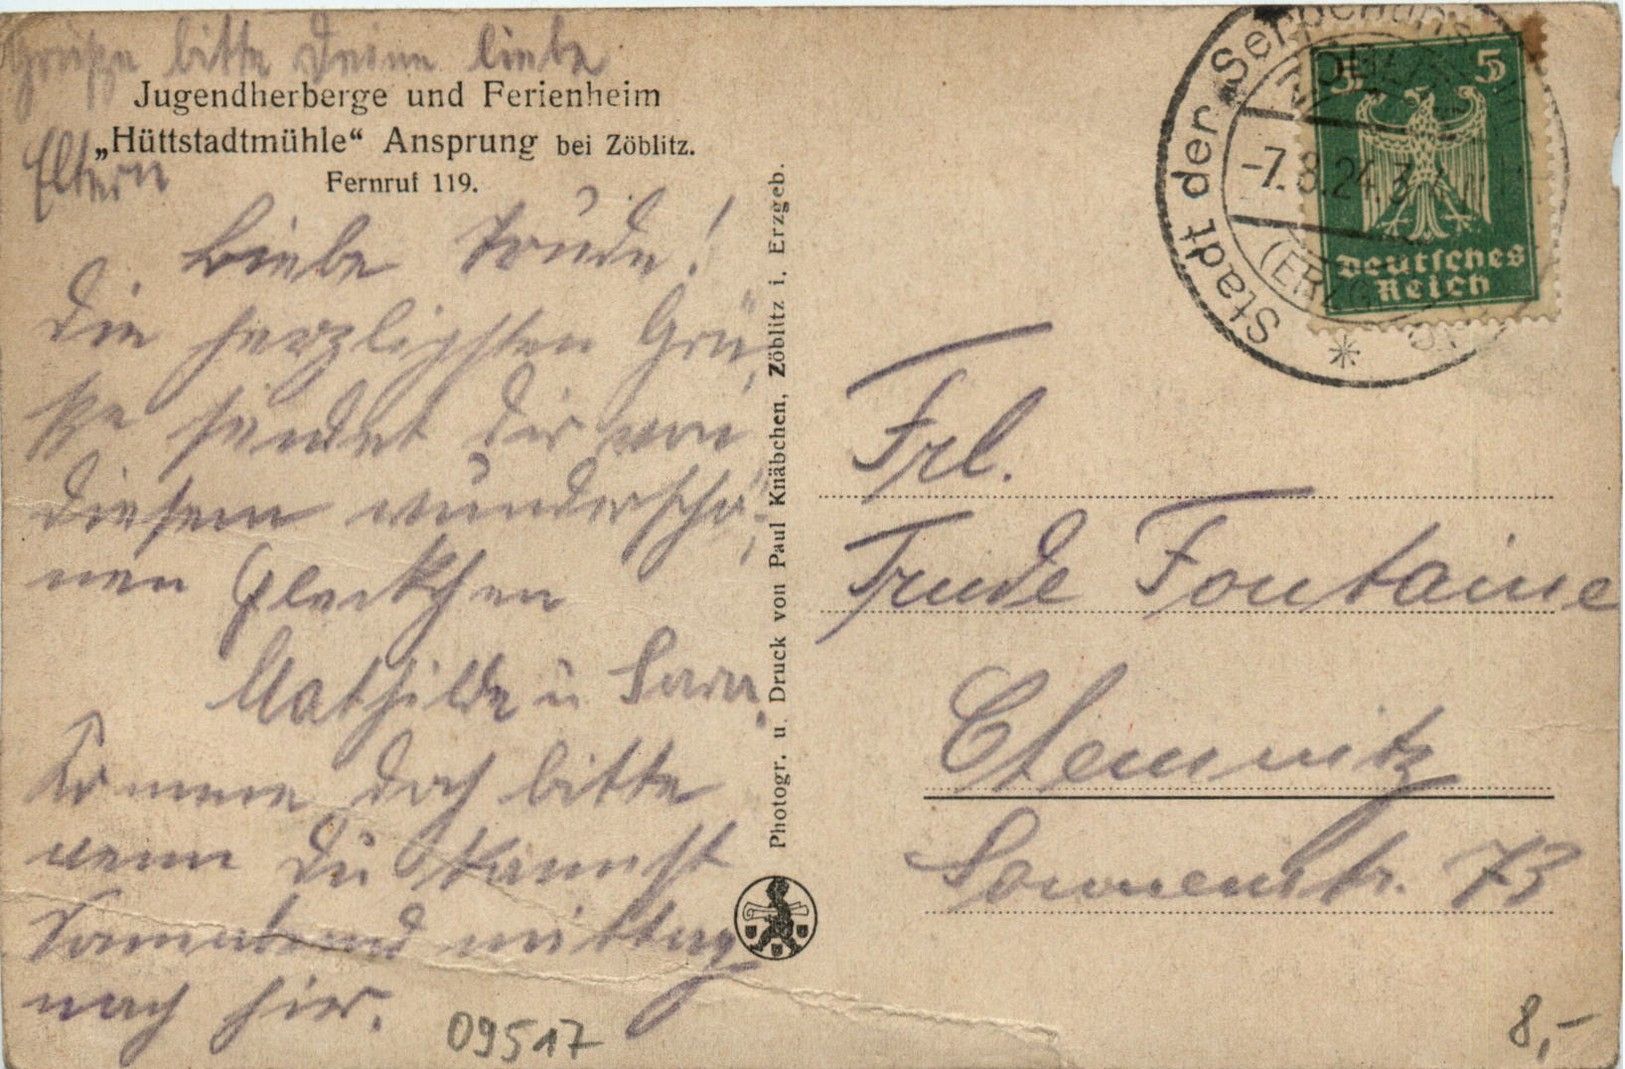 Grüße bitte Deine liebe
Eltern
Jugendherberge und Ferienheim
„Hüttstadtmühle“ Ansprung bei Zöblitz.
Fernruf 119.
Liebe Trude!
Die herzligsten Grü-
ße sendet Dir von
diesem wunderschö-
nen Fleckchen
Mathilde u
Komme doch bitte
wenn Du kannst
Sonnabend mittag
nach hier.
09517
Photogr. u. Druck von Paul Knäbchen, Zöblitz i. Erzgeb.
Stadt der Serpentins
-7.8.24.3
(ERZG
5 5
Deutsches
Reich
Frl.
Trude Fontaine
Chemnitz
Sonnenstr. 73
8,-